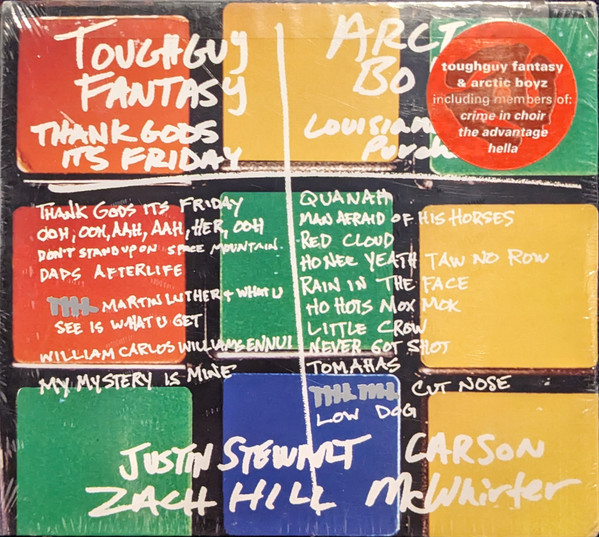 TOUGHGUY
FANTASY
THANK GODS
ITS FRIDAY
THANK GODS ITS FRIDAY
OOH, OOH, AAH, AAH, HER, OOH
DON'T STAND UP ON SPACE MOUNTAIN
DADS AFTERLIFE
MARTIN LUTHER + WHAT U
SEE IS WHAT U GET
WILLIAM CARLOS WILLIAMS ENNUI
MY MYSTERY IS MINE
ARCT
BO
LOUISIAN
PURCH
toughguy fantasy
& arctic boyz
including members of:
crime in choir
the advantage
hella
QUANAH
MAN AFRAID OF HIS HORSES
RED CLOUD
HONEC YEATH TAW NO ROW
RAIN IN THE FACE
HO HOTS MOX MOK
LITTLE CROW
NEVER GOT SHOT
TOMAHAS
CUT NOSE
LOW DOG
JUSTIN STEWART CARSON
ZACH HILL McWhirter